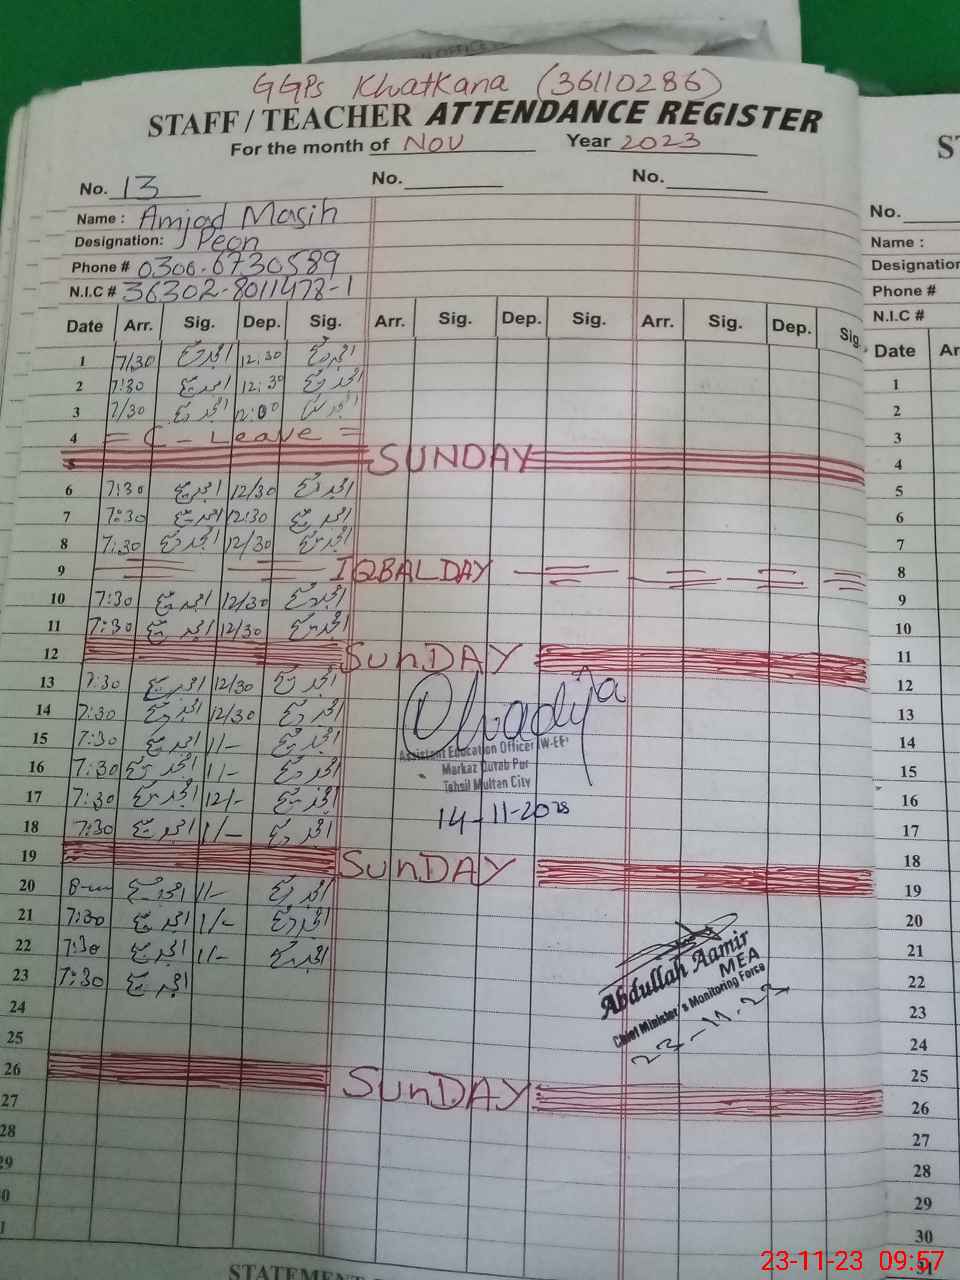 GGPS Khatkana (36110286)
STAFF / TEACHER ATTENDANCE REGISTER
For the month of Nov Year 2023
No. 13 No. No.
Name : Amjad Masih
Designation: Peon
Phone # 0300-6730589
N.I.C # 36302-8011478-1
Date Arr. Sig. Dep. Sig. Arr. Sig. Dep. Sig. Arr. Sig. Dep. Sig.
1 7/30 امجد مسیح 12:30 امجد مسیح
2 7:30 امجد مسیح 12:30 امجد مسیح
3 7/30 امجد مسیح 12:00 امجد مسیح
4 = C - Leave =
5 SUNDAY
6 7:30 امجد مسیح 12/30 امجد مسیح
7 7:30 امجد مسیح 12:30 امجد مسیح
8 7:30 امجد مسیح 12/30 امجد مسیح
9 IQBAL DAY
10 7:30 امجد مسیح 12/30 امجد مسیح
11 7:30 امجد مسیح 12/30 امجد مسیح
12 SUnDAY
13 7:30 امجد مسیح 12/30 امجد مسیح
14 7:30 امجد مسیح 12/30 امجد مسیح
15 7:30 امجد مسیح 1/- امجد مسیح
16 7:30 امجد مسیح 1/- امجد مسیح
17 7:30 امجد مسیح 12/- امجد مسیح
18 7:30 امجد مسیح 1/- امجد مسیح
19 SUnDAY
20 امجد مسیح 1/- امجد مسیح
21 7:30 امجد مسیح 1/- امجد مسیح
22 7:30 امجد مسیح 1/- امجد مسیح
23 7:30 امجد مسیح
24
25
26 SUnDAY
27
28
29
Khadija
Assistant Education Officer (W-EE)
Markaz Qutab Pur
Tehsil Multan City
14-11-2023
Abdullah Aamir
MEA
Chief Minister's Monitoring Force
23-11-23
STATEMENT
No.
Name :
Designation
Phone #
N.I.C #
Date
1
2
3
4
5
6
7
8
9
10
11
12
13
14
15
16
17
18
19
20
21
22
23
24
25
26
27
28
29
30
31
23-11-23 09:57